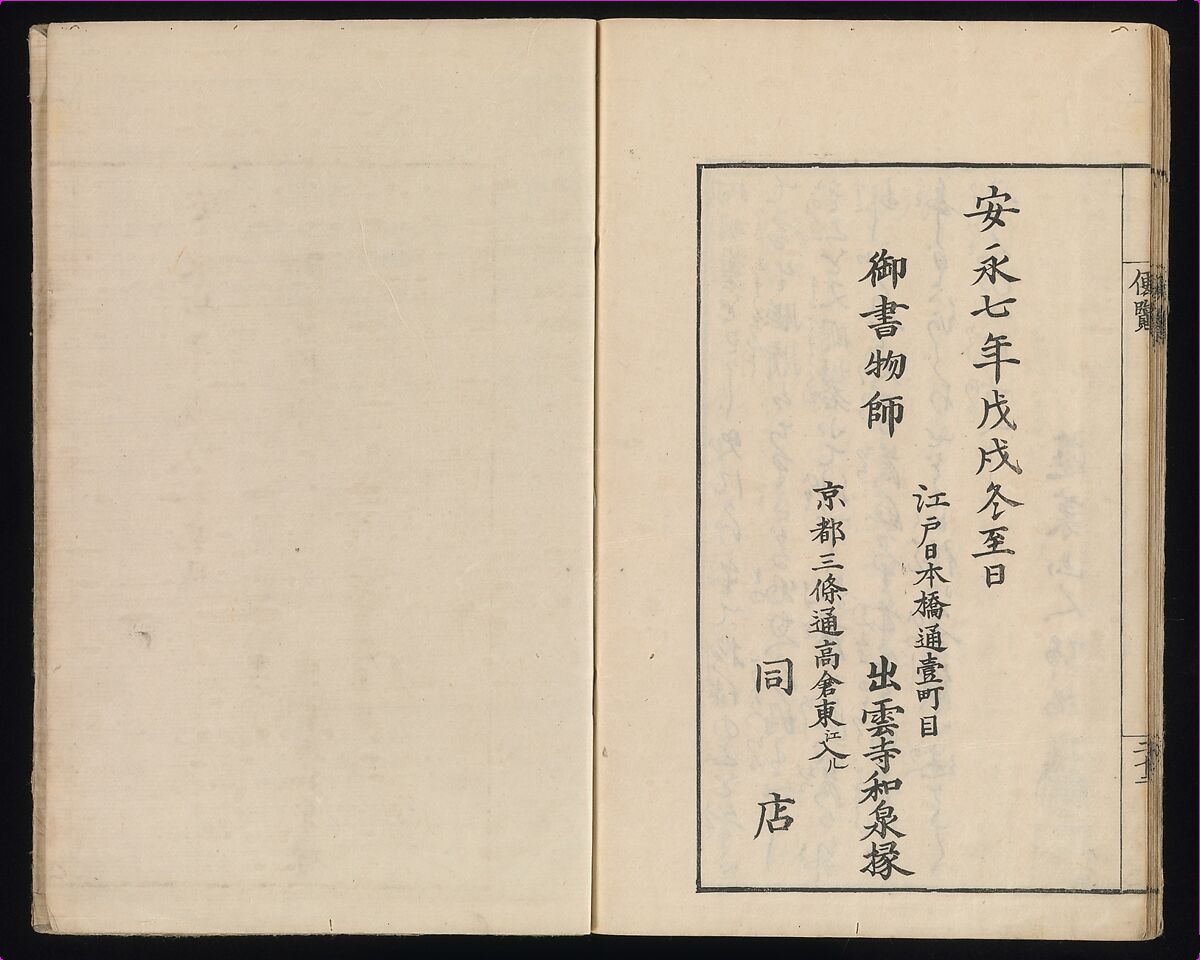 便覽
安永七年戊戌冬至日
江戸日本橋通壹町目
御書物師 出雲寺和泉掾
京都三條通高倉東江入ル
同店